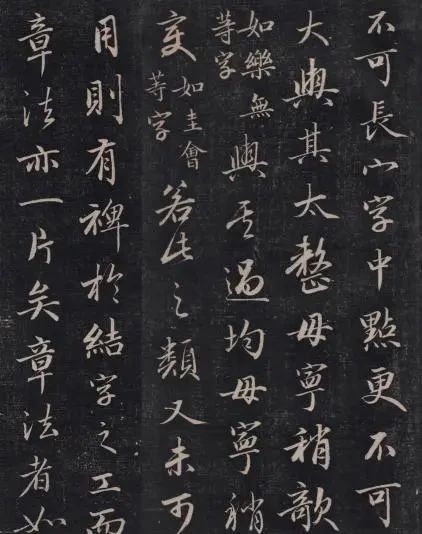 不可長小字中點更不可
大與其太整毋寧稍欹
如樂無等字與其過均毋寧稍
變如圭會等字若此之類又未可
用則有裨於結字之工而
章法亦一片矣章法者如